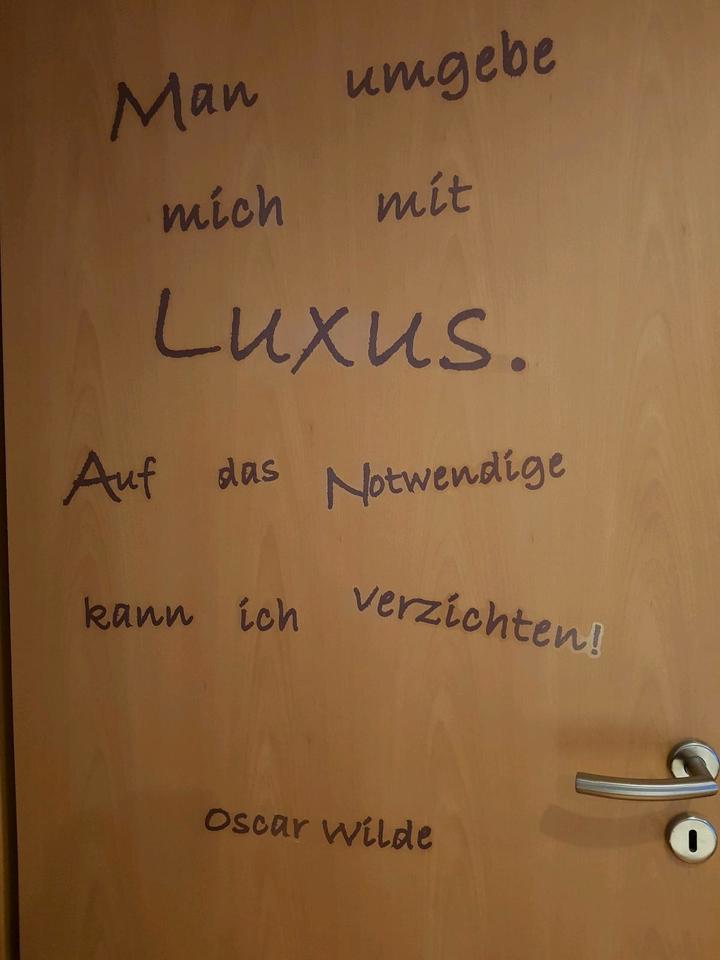 Man umgebe
mich mit
Luxus.
Auf das Notwendige
kann ich verzichten!
Oscar Wilde